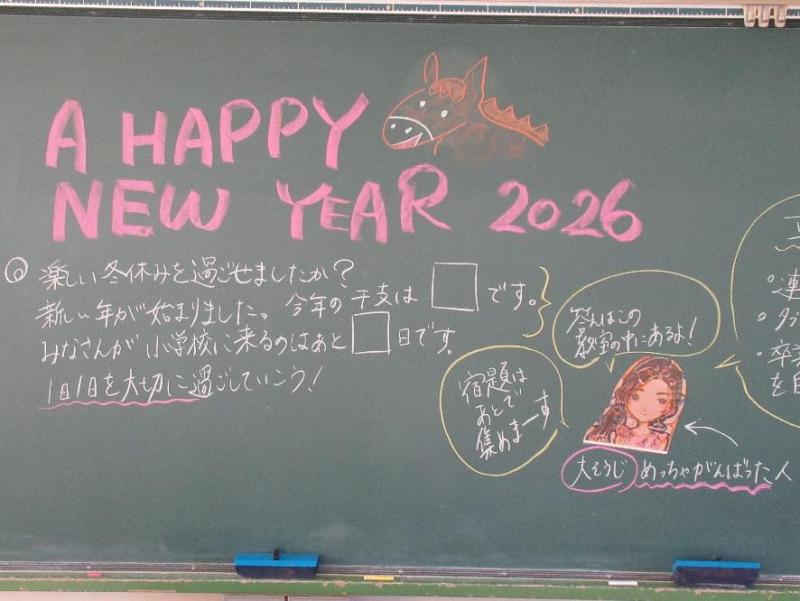 A HAPPY
NEW YEAR 2026
◎ 楽しい冬休みを過ごせましたか?
新しい年が始まりました。今年の干支は□です。
みなさんが小学校に来るのはあと□日です。
1日1日を大切に過ごしていこう!
答えはこの
教室の中にあるよ!
宿題は
あとで
集めまーす
大そうじ めっちゃがんばった人
・連
・タブ
・卒
を